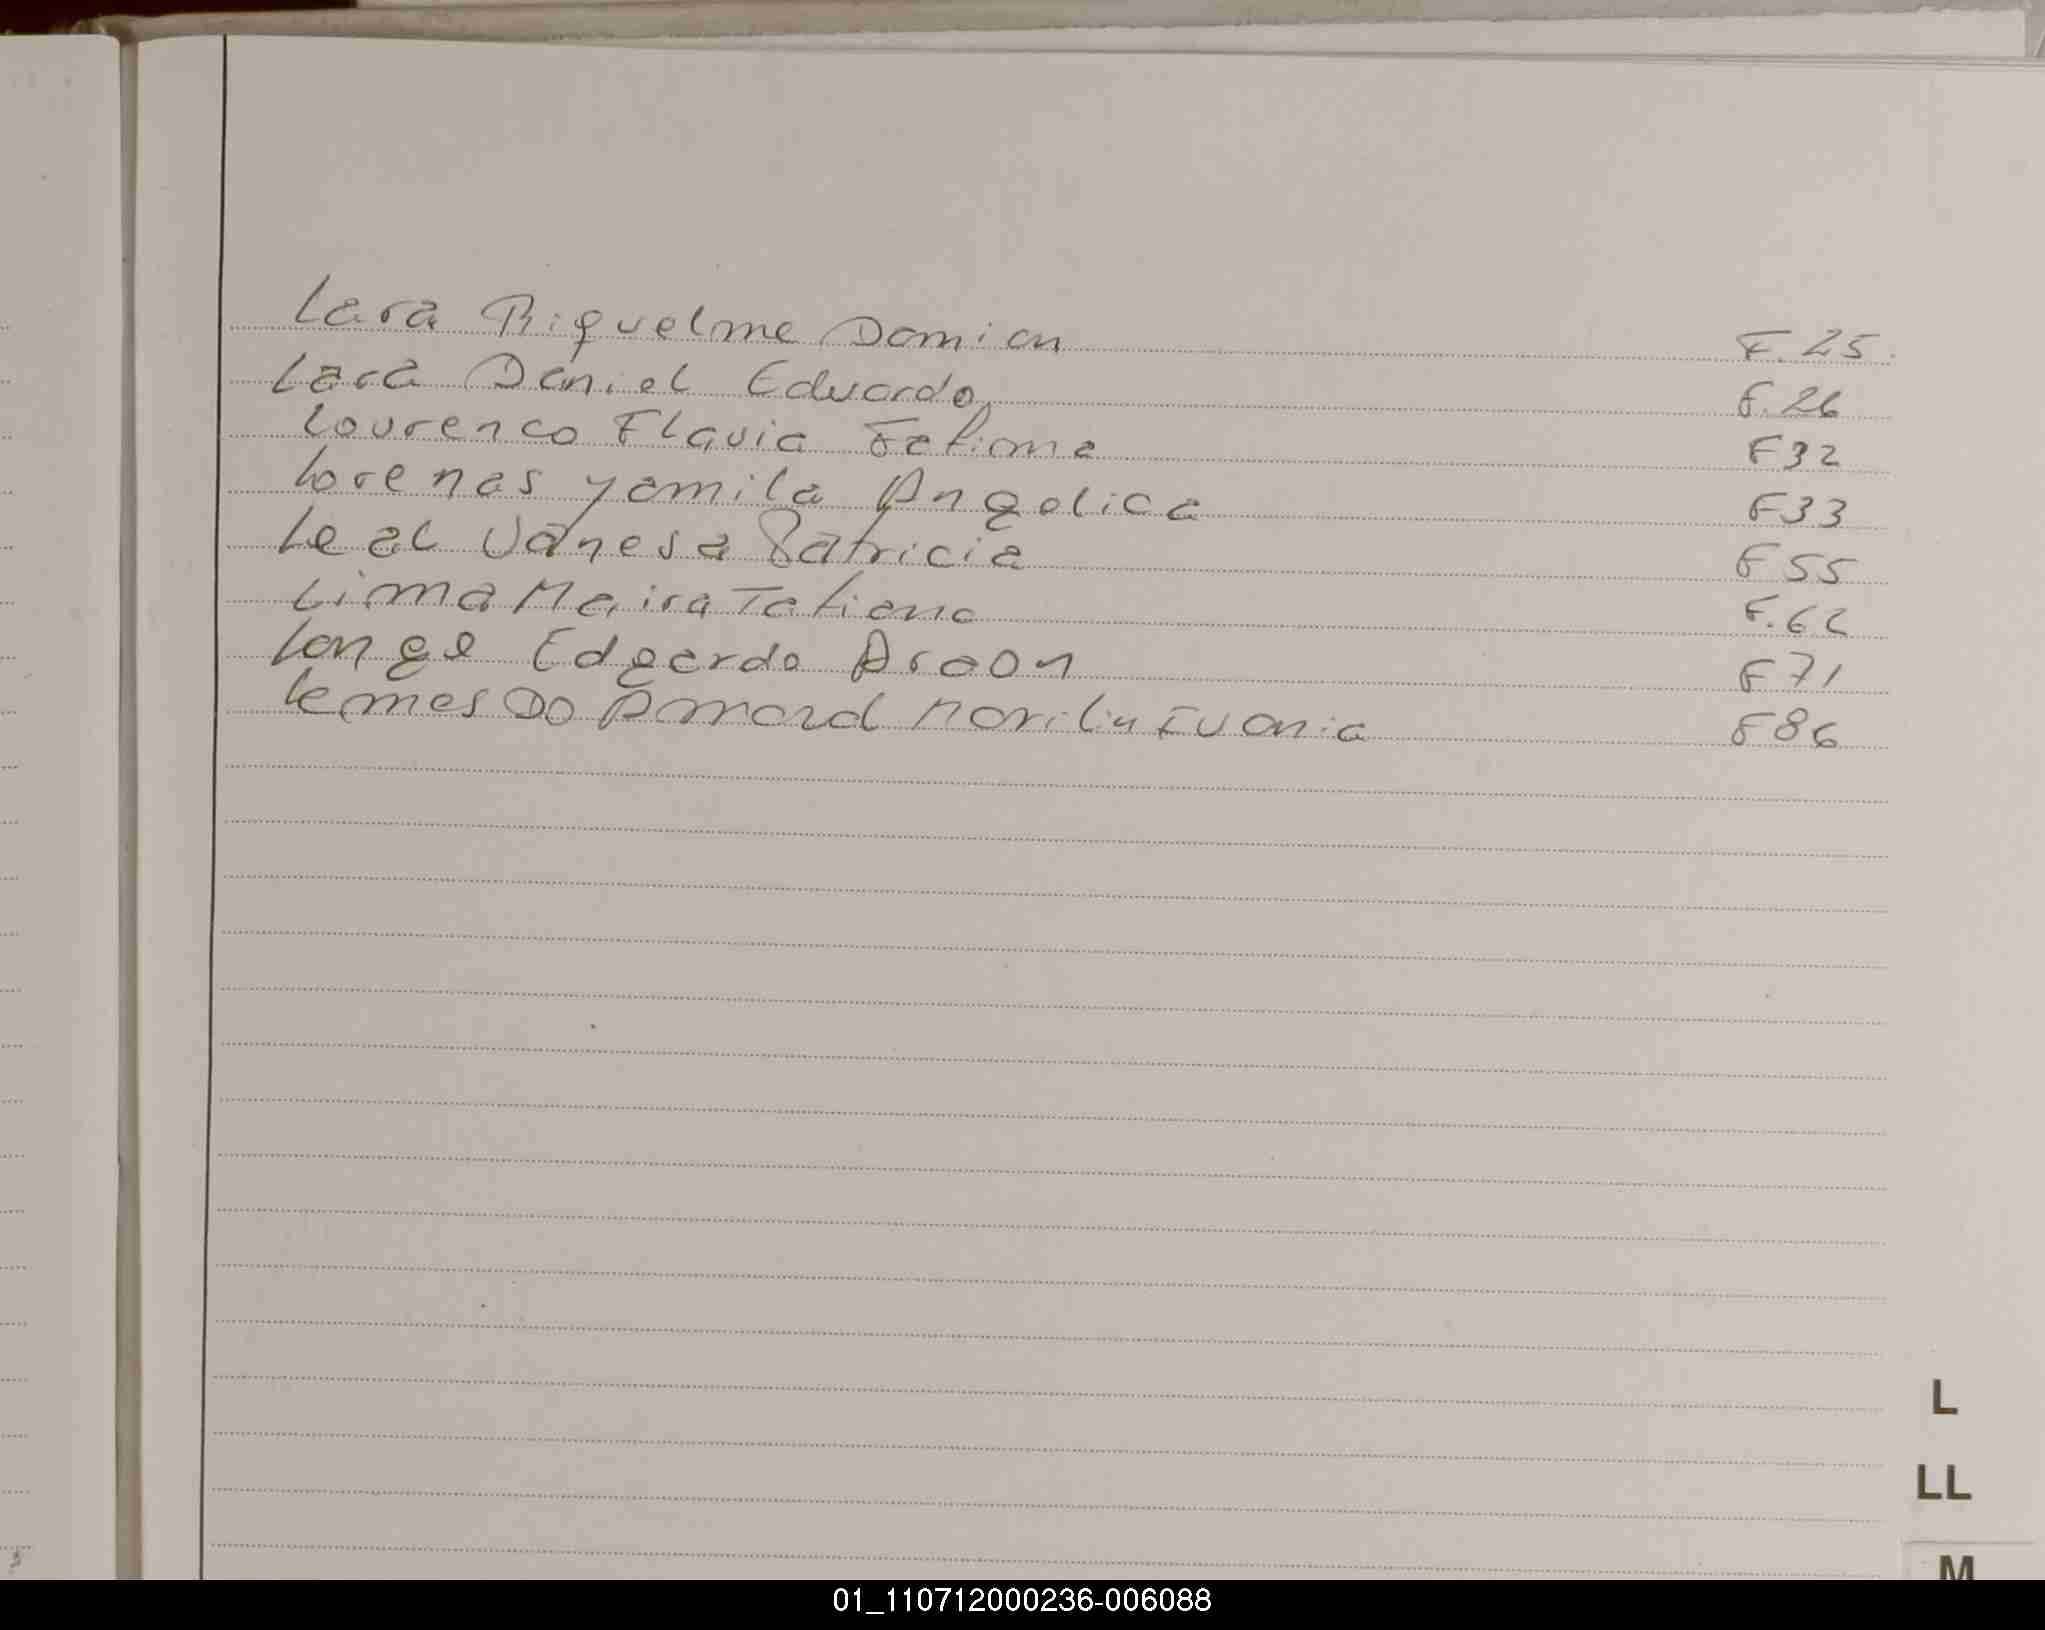 Lara Riquelme Damian F.25
Lara Daniel Eduardo F.26
Lourenco Flavia Fatima F32
Lorenas Yamila Angelica F33
Leal Vanesa Patricia F55
Lima Maira Tatiana F.62
Lange Edgardo Araon F71
Lemes Do Amaral Marilin Ivania F86
L
LL
M
01_110712000236-006088